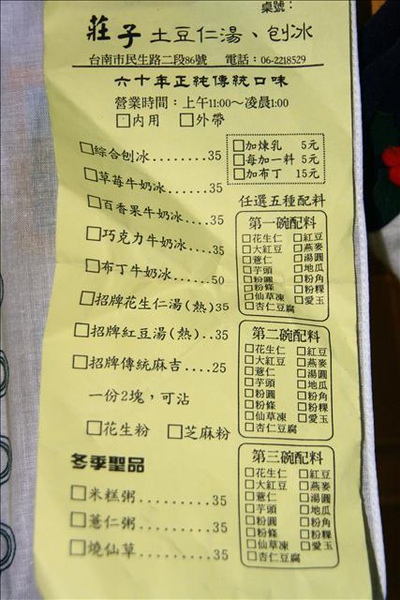 桌號：
莊子 土豆仁湯、刨冰
台南市民生路二段86號 電話：06-2218529
六十年正純傳統口味
營業時間：上午11:00～凌晨1:00
□內用 □外帶
□綜合刨冰........35
□草莓牛奶冰......35
□百香果牛奶冰....35
□巧克力牛奶冰....35
□布丁牛奶冰......50
□招牌花生仁湯(熱)35
□招牌紅豆湯(熱)..35
□招牌傳統麻吉....25
一份2塊，可沾
□花生粉 □芝麻粉
冬季聖品
□米糕粥.........35
□薏仁粥.........35
□燒仙草.........35
□加煉乳 5元
□每加一料 5元
□加布丁 15元
任選五種配料
第一碗配料
□花生仁 □紅豆
□大紅豆 □燕麥
□薏仁 □湯圓
□芋頭 □地瓜
□粉圓 □粉角
□粉條 □粉粿
□仙草凍 □愛玉
□杏仁豆腐
第二碗配料
□花生仁 □紅豆
□大紅豆 □燕麥
□薏仁 □湯圓
□芋頭 □地瓜
□粉圓 □粉角
□粉條 □粉粿
□仙草凍 □愛玉
□杏仁豆腐
第三碗配料
□花生仁 □紅豆
□大紅豆 □燕麥
□薏仁 □湯圓
□芋頭 □地瓜
□粉圓 □粉角
□粉條 □粉粿
□仙草凍 □愛玉
□杏仁豆腐